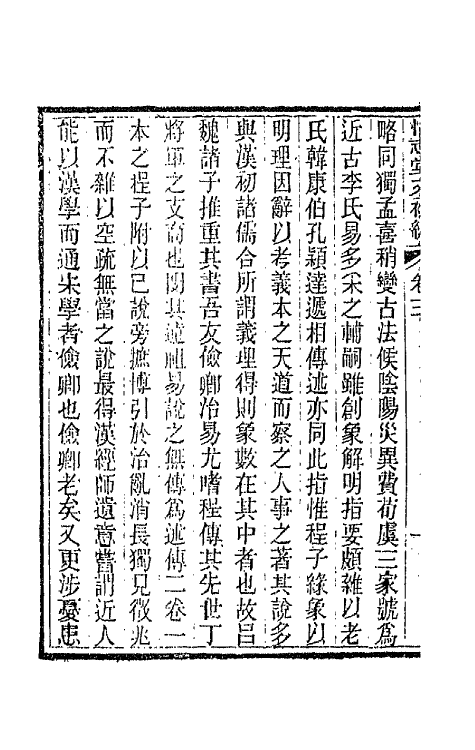 略同獨孟喜稍變古法候陰陽災異費荀虞三家號爲
近古李氏易多采之輔嗣雖創象解明指要頗雜以老
氏韓康伯孔穎達遞相傳述亦同此指惟程子緣象以
明理因辭以考義本之天道而察之人事之著其說多
與漢初諸儒合所謂義理得則象數在其中者也故呂
魏諸子推重其書吾友儉卿治易尤嗜程傳其先世丁
將軍之支裔也閔其遠祖易說之無傳爲述傳二卷一
本之程子附以己說旁摭博引於治亂消長獨見徵兆
而不雜以空疏無當之說最得漢經師遺意嘗謂近人
能以漢學而通宋學者儉卿也儉卿老矣又更涉憂患